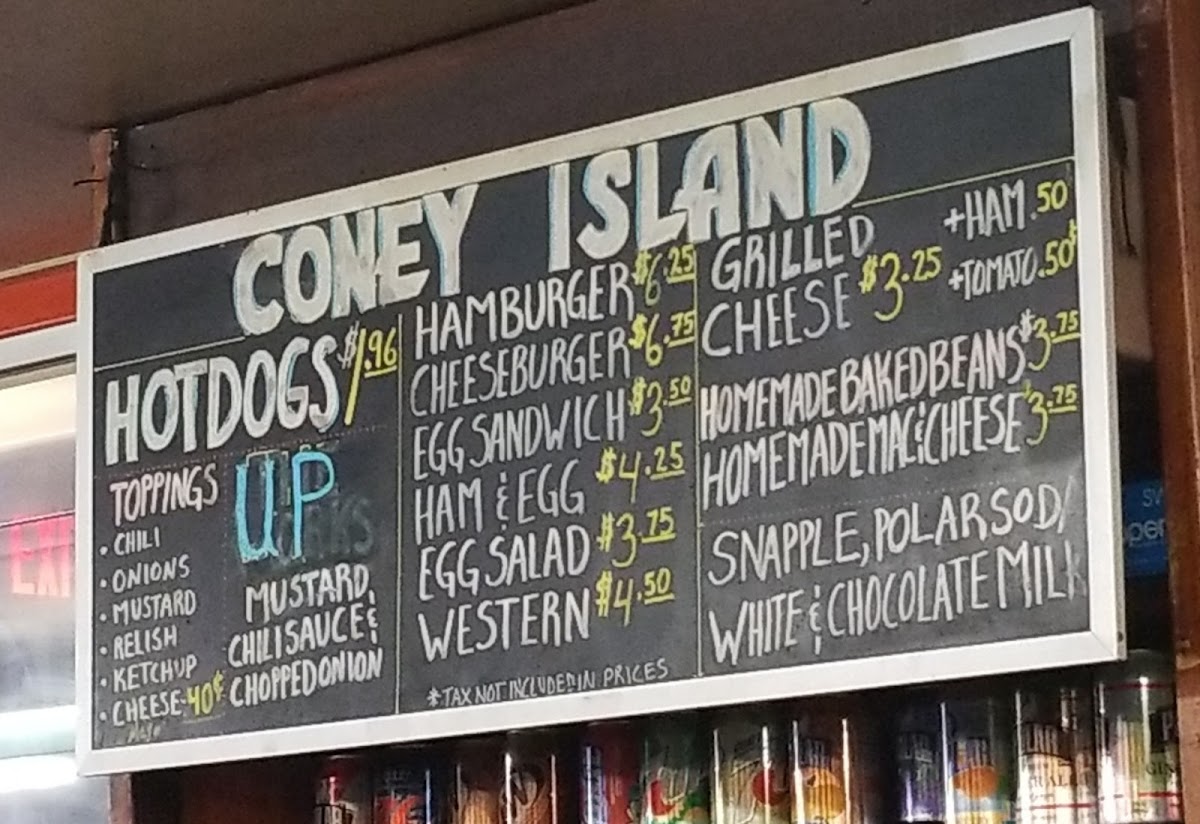 CONEY ISLAND
HOTDOGS $1.96
TOPPINGS
• CHILI
• ONIONS
• MUSTARD
• RELISH
• KETCHUP
• CHEESE-40¢
MAYO
UP
MUSTARD,
CHILI SAUCE &
CHOPPED ONION
HAMBURGER $6.25
CHEESEBURGER $6.75
EGG SANDWICH $3.50
HAM & EGG $4.25
EGG SALAD $3.75
WESTERN $4.50
*TAX NOT INCLUDED IN PRICES
GRILLED
CHEESE $3.25
+HAM .50
+TOMATO .50¢
HOMEMADE BAKED BEANS $3.75
HOMEMADE MAC & CHEESE $3.75
SNAPPLE, POLAR SODA
WHITE & CHOCOLATE MILK
EXI